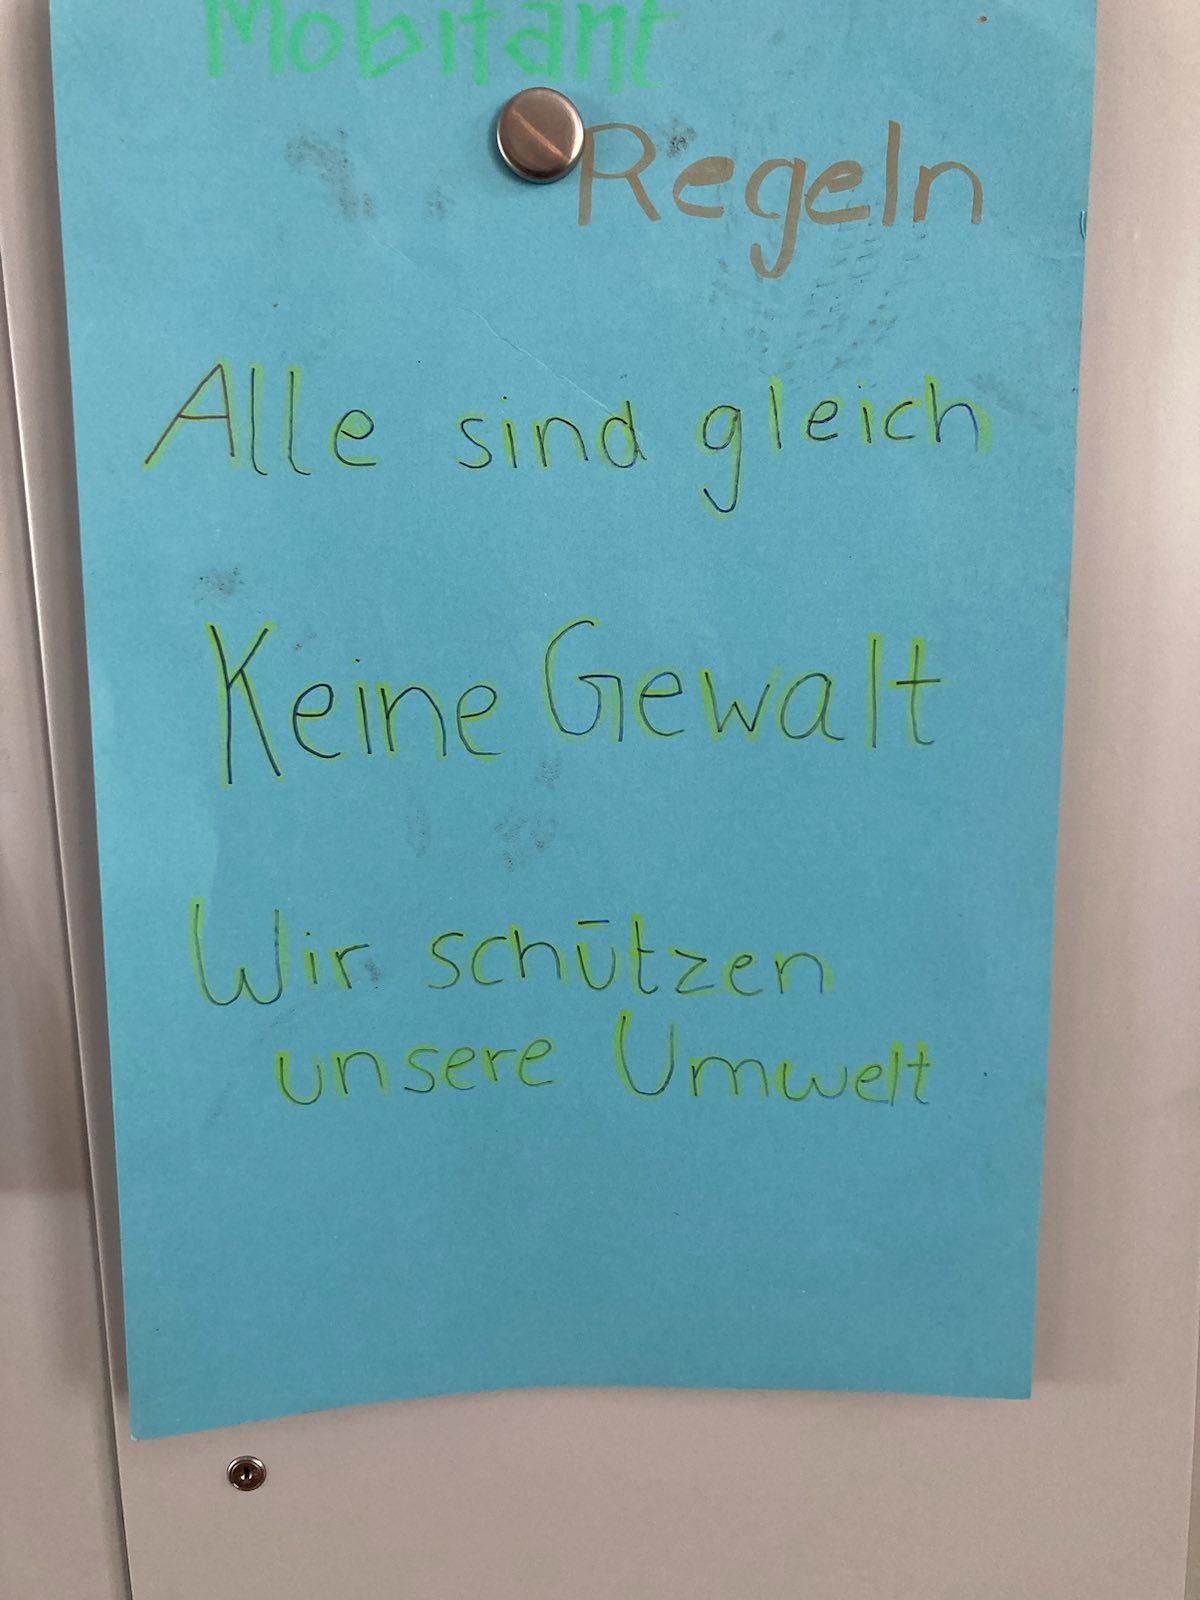 Mobitant
Regeln
Alle sind gleich
Keine Gewalt
Wir schützen
unsere Umwelt